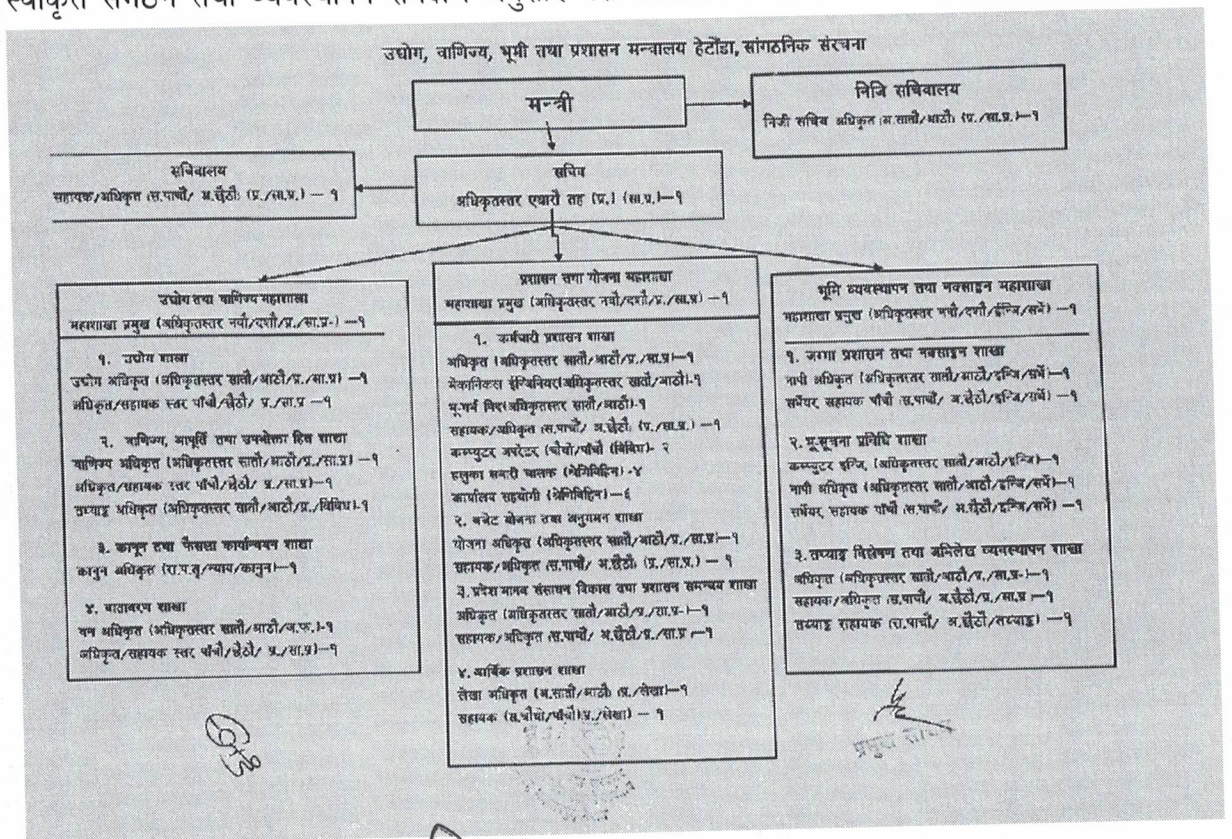 स्वीकृत संगठन तथा व्यवस्थापन
उद्योग, वाणिज्य, भूमी तथा प्रशासन मन्त्रालय हेटौंडा, सांगठनिक संरचना
मन्त्री
निजि सचिवालय
निजी सचिव अधिकृत (अ.सातौ/आठौ) (प्र./सा.प्र.)—१
सचिवालय
सहायक/अधिकृत (स.पाचौ/ अ.छैठौ) (प्र./सा.प्र.) — १
सचिव
अधिकृतस्तर एघारौ तह (प्र.) (सा.प्र.)—१
उद्योग तथा वाणिज्य महाशाखा
महाशाखा प्रमुख (अधिकृतस्तर नवौ/दशौ/प्र./सा.प्र-) —१
१. उद्योग शाखा
उद्योग अधिकृत (अधिकृतस्तर सातौ/आठौ/प्र./सा.प्र)—१
अधिकृत/सहायक स्तर पाँचौ/छैठौ/ प्र./सा.प्र —१
२. वाणिज्य, आपूर्ति तथा उपभोक्ता हित शाखा
वाणिज्य अधिकृत (अधिकृतस्तर सातौ/आठौ/प्र./सा.प्र) —१
अधिकृत/सहायक स्तर पाँचौ/छैठौ/ प्र./सा.प्र)—१
तथ्याङ्क अधिकृत (अधिकृतस्तर सातौ/आठौ/प्र./विविध)-१
३. कानून तथा फैसला कार्यान्वयन शाखा
कानुन अधिकृत (रा.प.तृ/न्याय/कानुन)—१
४. वातावरण शाखा
वन अधिकृत (अधिकृतस्तर सातौ/आठौ/ज.फ.)-१
अधिकृत/सहायक स्तर पाँचौ/छैठौ/ प्र./सा.प्र)—१
प्रशासन तथा योजना महाशाखा
महाशाखा प्रमुख (अधिकृतस्तर नवौ/दशौ/प्र./सा.प्र) —१
१. कर्मचारी प्रशासन शाखा
अधिकृत (अधिकृतस्तर सातौ/आठौ/प्र./सा.प्र)—१
मेकानिकल ईन्जिनियर(अधिकृतस्तर सातौ/आठौ)-१
भू-गर्भ विद(अधिकृतस्तर सातौ/आठौ)-१
सहायक/अधिकृत (स.पाचौ/ अ.छैठौ) (प्र./सा.प्र.) —१
कम्प्युटर अपरेटर (चौथो/पाँचौ (विविध)- २
हलुका सवारी चालक (श्रेणिविहिन) -४
कार्यालय सहयोगी (श्रेणिविहिन) —६
२. बजेट योजना तथा अनुगमन शाखा
योजना अधिकृत (अधिकृतस्तर सातौ/आठौ/प्र./सा.प्र)—१
सहायक/अधिकृत (स.पाचौ/ अ.छैठौ) (प्र./सा.प्र.) — १
३. प्रदेश मानव संसाधन विकास तथा प्रशासन समन्वय शाखा
अधिकृत (अधिकृतस्तर सातौ/आठौ/प्र./सा.प्र-)—१
सहायक/अधिकृत (स.पाचौ/ अ.छैठौ/प्र./सा.प्र )—१
४. आर्थिक प्रशासन शाखा
लेखा अधिकृत (अ.सातौ/आठौ) (प्र./लेखा)—१
सहायक (स.चौथो/पाँचौ)(प्र./लेखा) — १
भूमि व्यवस्थापन तथा नक्साङ्कन महाशाखा
महाशाखा प्रमुख (अधिकृतस्तर नवौ/दशौ/ईन्जि/सर्भे) —१
१. जग्गा प्रशासन तथा नक्साङ्कन शाखा
नापी अधिकृत (अधिकृतस्तर सातौ/आठौ/इन्जि/सर्भे)—१
सर्भेयर, सहायक पाँचौ (स.पाचौ/ अ.छैठौ/इन्जि/सर्भे) —१
२.भू-सूचना प्रविधि शाखा
कम्प्युटर इन्जि. (अधिकृतस्तर सातौ/आठौ/इन्जि)—१
नापी अधिकृत (अधिकृतस्तर सातौ/आठौ/इन्जि/सर्भे)—१
सर्भेयर, सहायक पाँचौ (स.पाचौ/ अ.छैठौ/इन्जि/सर्भे) —१
३.तथ्याङ्क विश्लेषण तथा अभिलेख व्यवस्थापन शाखा
अधिकृत (अधिकृतस्तर सातौ/आठौ/प्र./सा.प्र-)—१
सहायक/अधिकृत (स.पाचौ/ अ.छैठौ/प्र./सा.प्र )—१
तथ्याङ्क सहायक (स.पाचौ/ अ.छैठौ/तथ्याङ्क) —१
प्रमुख